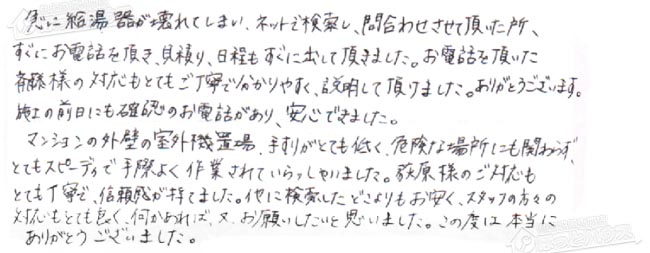 急に給湯器が壊れてしまい、ネットで検索し、問合わせさせて頂いた所、
すぐにお電話を頂き、見積り、日程もすぐに出して頂きました。お電話を頂いた
斉藤様の対応もとてもご丁寧で分かりやすく、説明して頂けました。ありがとうございます。
施工の前日にも確認のお電話があり、安心できました。
マンションの外壁の室外機置場、手すりがとても低く、危険な場所にも関わらず、
とてもスピーディで手際よく作業されていらっしゃいました。荻原様のご対応も
とても丁寧で、信頼感が持てました。他に検索したどこよりもお安く、スタッフの方々の
対応もとても良く、何かあれば、又、お願いしたいと思いました。この度は本当に
ありがとうございました。